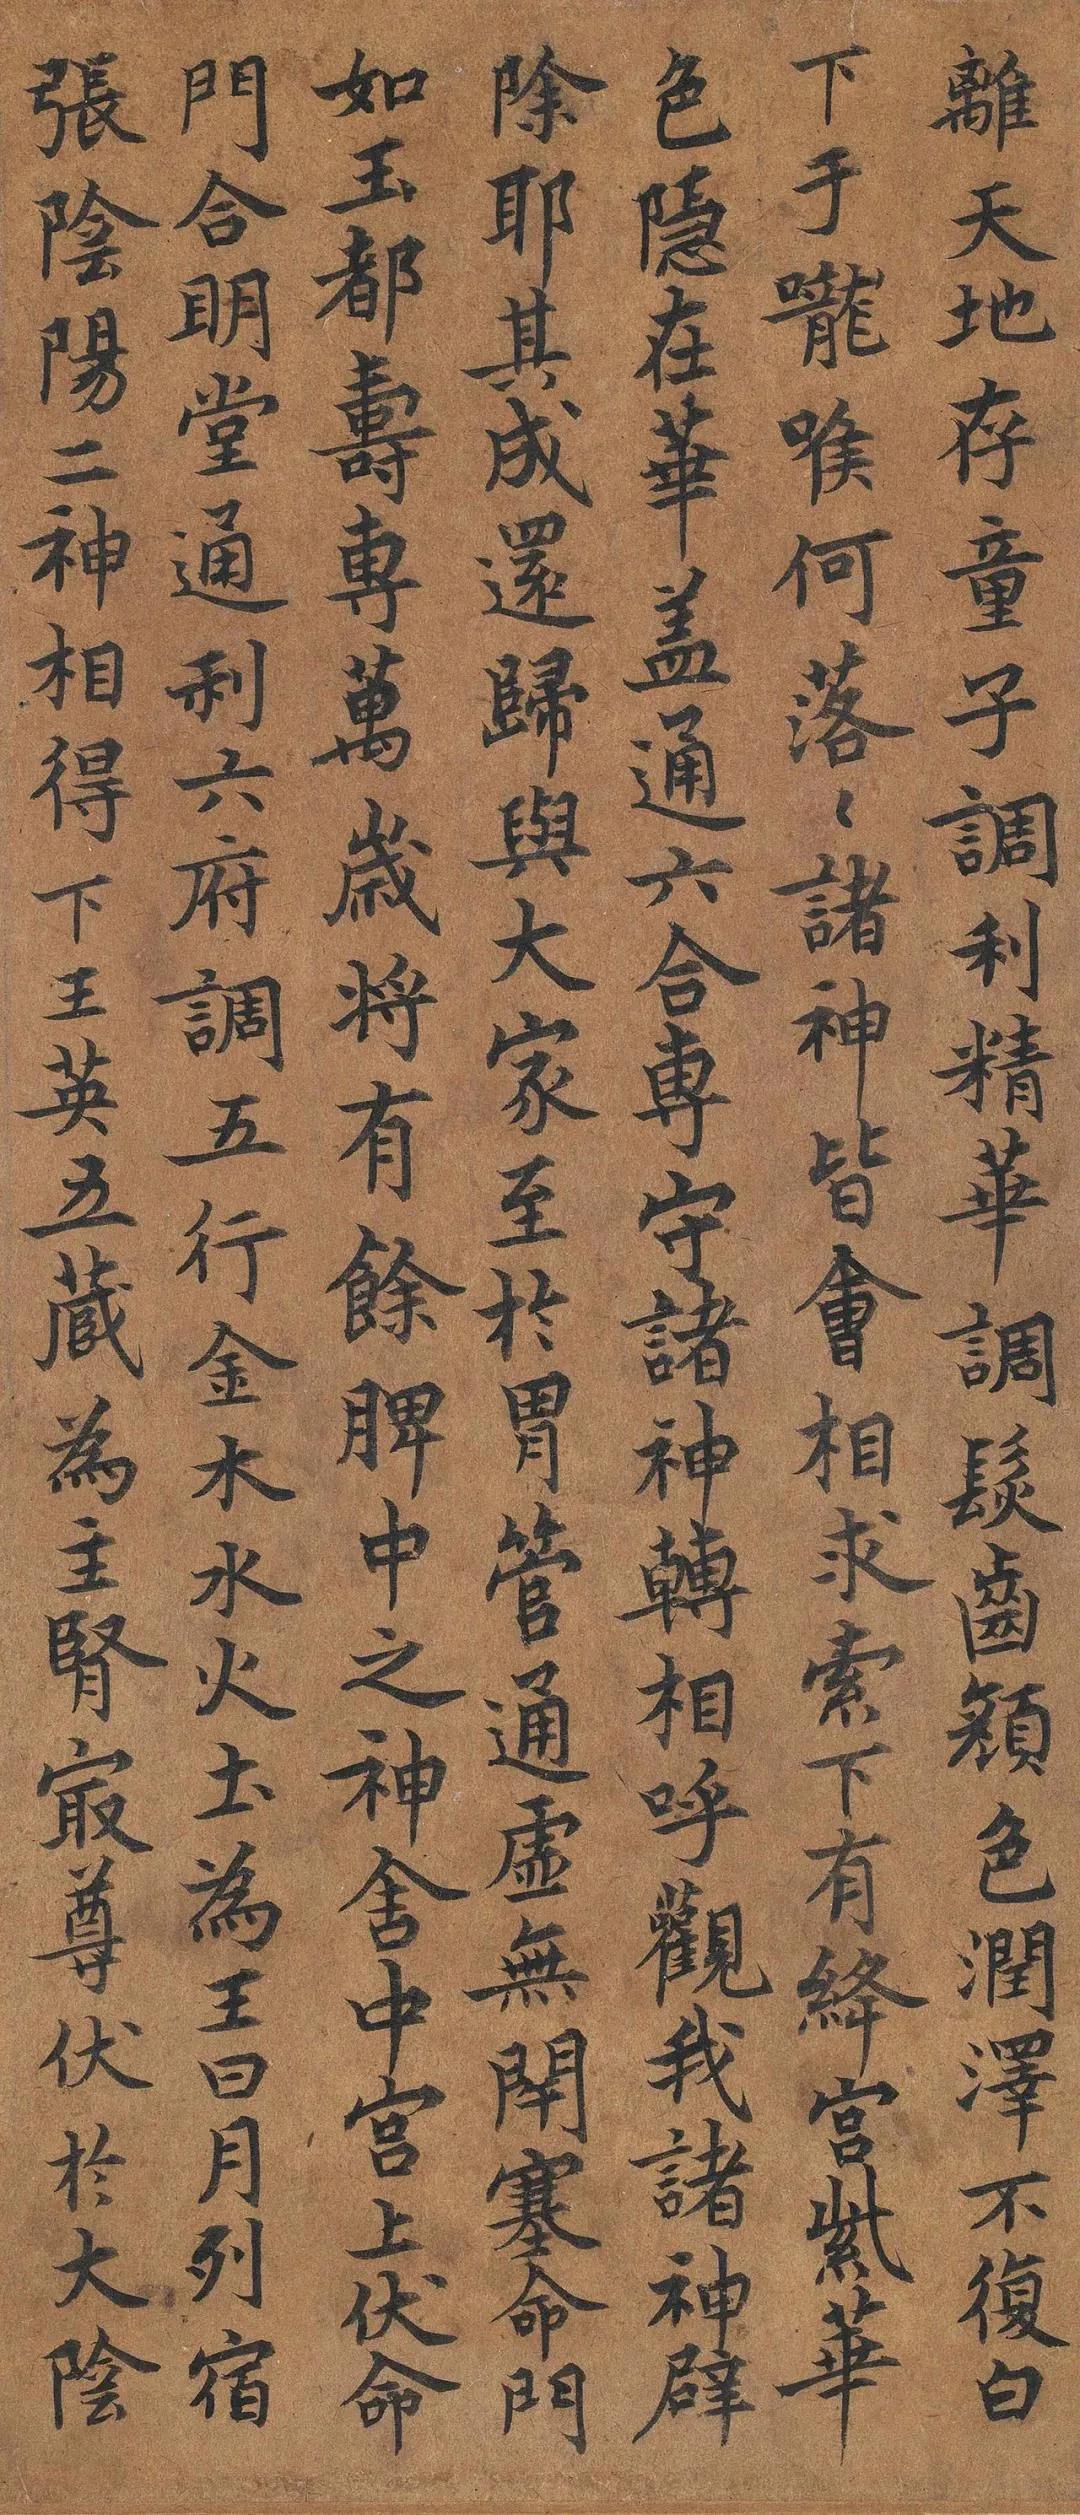 離天地存童子調利精華調髮齒顏色潤澤不復白
下于嚨喉何落〻諸神皆會相求索下有絳宮紫華
色隱在華盖通六合專守諸神轉相呼觀我諸神辟
除耶其成還歸與大家至於胃管通虛無閉塞命門
如玉都壽專萬歲将有餘脾中之神舍中宮上伏命
門合明堂通利六府調五行金木水火土為王日月列宿
張陰陽二神相得下王英五蔵為主腎最尊伏於大陰